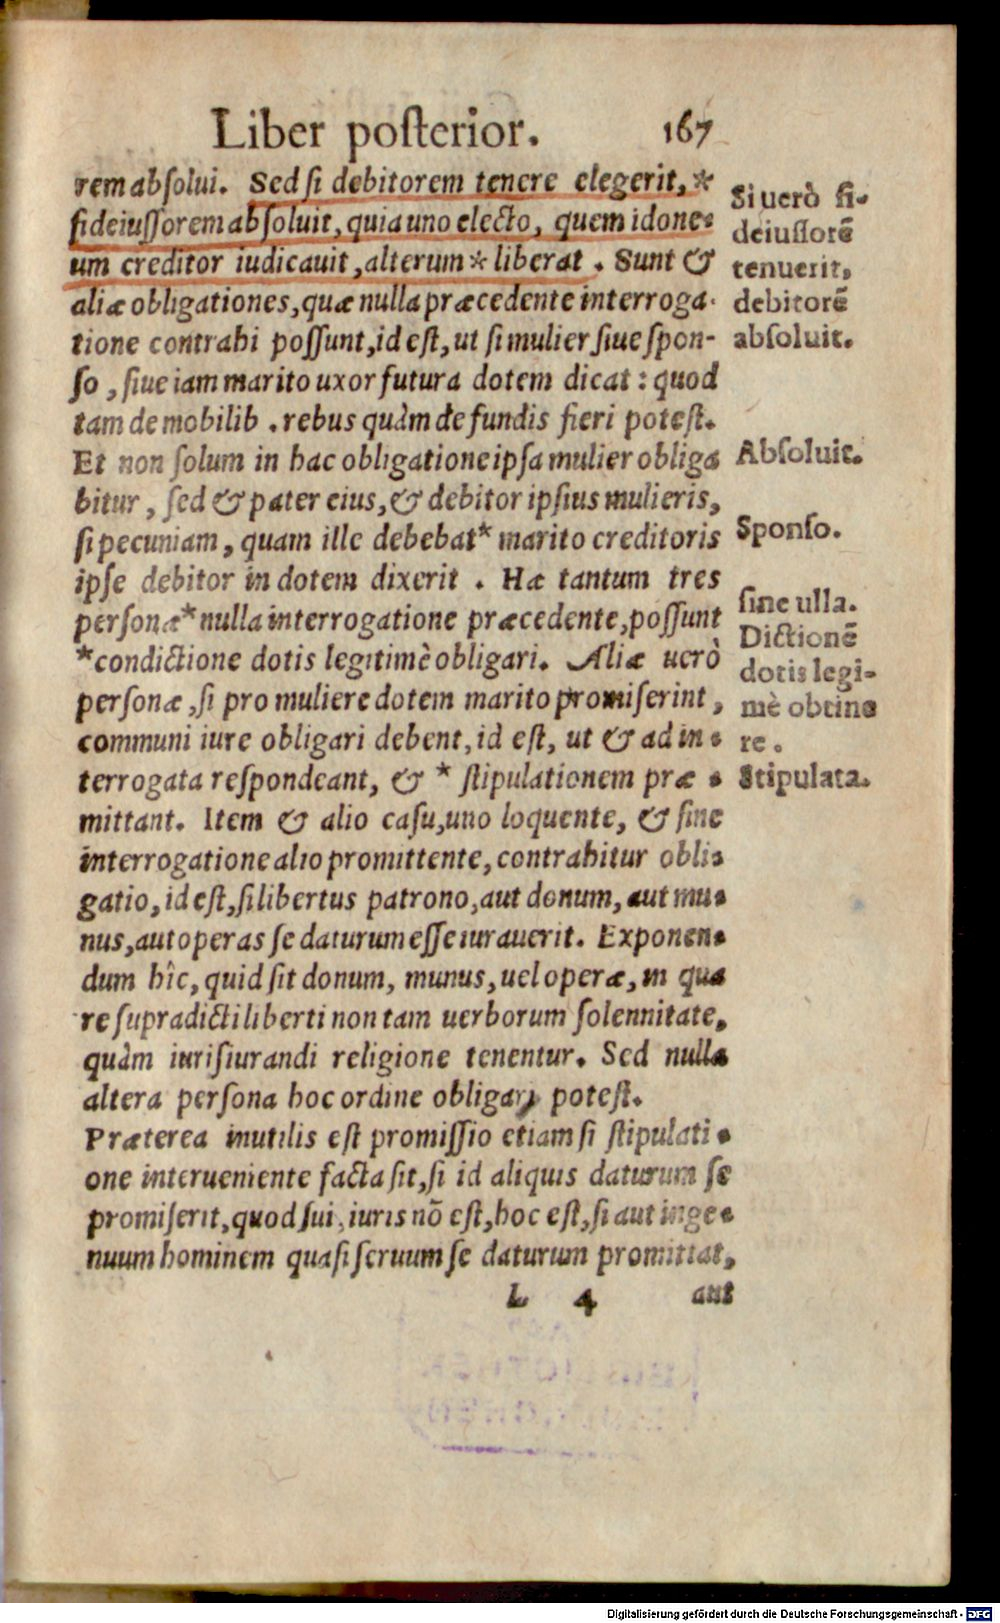 Liber posterior. 167
rem absolui. Sed si debitorem tenere elegerit,*
fideiussorem absoluit, quia uno electo, quem idone-
um creditor iudicauit, alterum* liberat. Sunt &
aliæ obligationes, quæ nulla præcedente interroga-
tione contrahi possunt, id est, ut si mulier siue spon-
so, siue iam marito uxor futura dotem dicat: quod
tam de mobilib. rebus quàm de fundis fieri potest.
Et non solum in hac obligatione ipsa mulier obliga
bitur, sed & pater eius, & debitor ipsius mulieris,
si pecuniam, quam ille debebat* marito creditoris
ipse debitor in dotem dixerit. Hæ tantum tres
personæ* nulla interrogatione præcedente, possunt
*condictione dotis legitimè obligari. Aliæ uerò
personæ, si pro muliere dotem marito promiserint,
communi iure obligari debent, id est, ut & ad in-
terrogata respondeant, & * stipulationem præ-
mittant. Item & alio casu, uno loquente, & sine
interrogatione alio promittente, contrahitur obli-
gatio, id est, si libertus patrono, aut donum, aut mu-
nus, aut operas se daturum esse iurauerit. Exponen-
dum hîc, quid sit donum, munus, uel operæ, in qua
re supradicti liberti non tam uerborum solennitate,
quàm iurisiurandi religione tenentur. Sed nulla
altera persona hoc ordine obligari potest.
Præterea inutilis est promissio etiam si stipulati-
one interueniente facta sit, si id aliquis daturum se
promiserit, quod sui, iuris nõ est, hoc est, si aut inge-
nuum hominem quasi seruum se daturum promittat,
L 4 aut
Si uerò fi-
deiussorẽ
tenuerit,
debitorẽ
absoluit.
Absoluit.
Sponso.
sine ulla.
Dictionẽ
dotis legi-
mè obtine
re.
Stipulata.
Digitalisierung gefördert durch die Deutsche Forschungsgemeinschaft - DFG